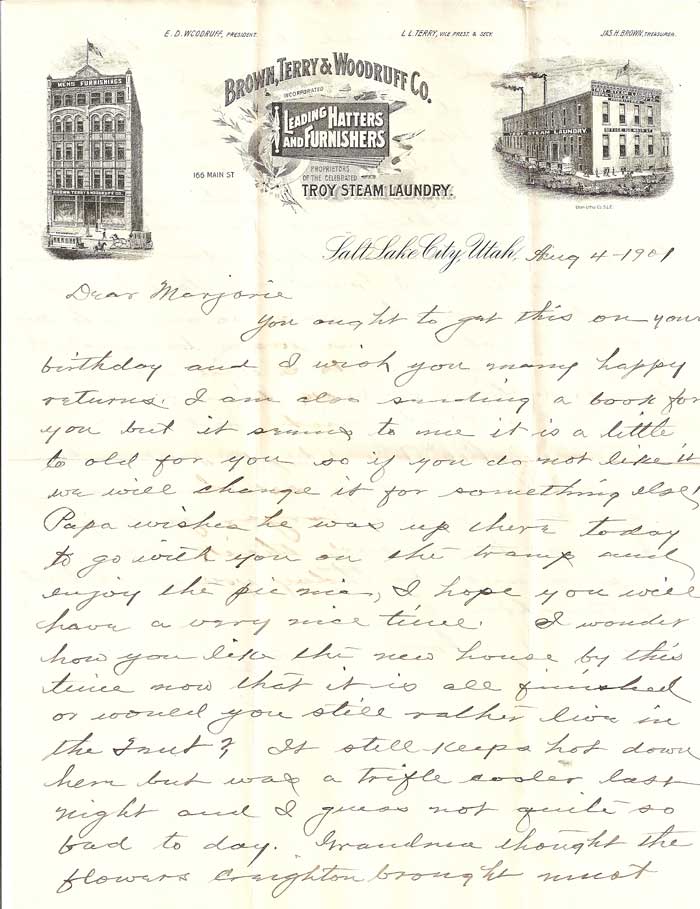 E. D. WOODRUFF, PRESIDENT.
L. L. TERRY, VICE PREST. & SECY.
JAS. H. BROWN, TREASURER.
BROWN, TERRY & WOODRUFF CO.
INCORPORATED
LEADING HATTERS
AND FURNISHERS
PROPRIETORS
OF THE CELEBRATED
TROY STEAM LAUNDRY.
166 MAIN ST
MENS FURNISHINGS
BROWN TERRY & WOODRUFF CO.
STEAM LAUNDRY
Salt Lake City, Utah, Aug 4-1901
Dear Marjorie
You ought to get this on your
birthday and I wish you many happy
returns. I am also sending a book for
you but it seems to me it is a little
to old for you so if you do not like it
we will change it for something else
Papa wishes he was up there today
to go with you on the tramp and
enjoy the pic nic, I hope you will
have a very nice time. I wonder
how you like the new house by this
time now that it is all finished
or would you still rather live in
the Tent?, It still keeps hot down
here but was a trifle cooler last
night and I guess not quite so
bad to day. Grandma thought the
flowers Creighton brought must